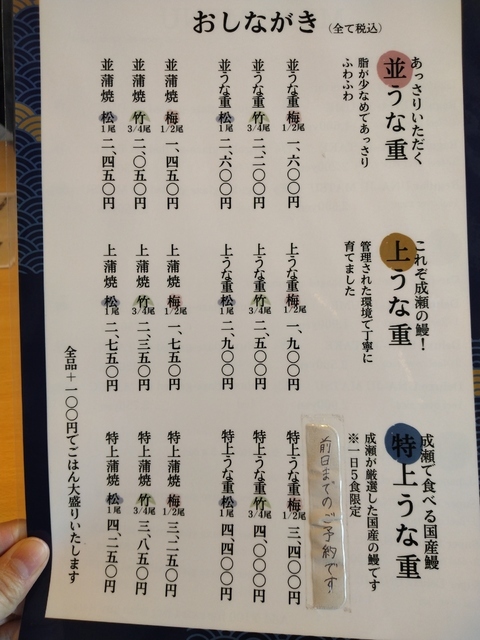 おしながき（全て税込）
あっさりいただく
並うな重
脂が少なめであっさり
ふわふわ
並うな重 梅 1/2尾 一、六〇〇円
並うな重 竹 3/4尾 二、二〇〇円
並うな重 松 1尾 二、六〇〇円
並蒲焼 梅 1/2尾 一、四五〇円
並蒲焼 竹 3/4尾 二、〇五〇円
並蒲焼 松 1尾 二、四五〇円
これぞ成瀬の鰻！
上うな重
管理された環境で丁寧に
育てました
上うな重 梅 1/2尾 一、九〇〇円
上うな重 竹 3/4尾 二、五〇〇円
上うな重 松 1尾 二、九〇〇円
上蒲焼 梅 1/2尾 一、七五〇円
上蒲焼 竹 3/4尾 二、三五〇円
上蒲焼 松 1尾 二、七五〇円
成瀬で食べる国産鰻
特上うな重
成瀬が厳選した国産の鰻です
※一日5食限定
前日までのご予約です。
特上うな重 梅 1/2尾 三、四〇〇円
特上うな重 竹 3/4尾 四、〇〇〇円
特上うな重 松 1尾 四、四〇〇円
特上蒲焼 梅 1/2尾 三、二五〇円
特上蒲焼 竹 3/4尾 三、八五〇円
特上蒲焼 松 1尾 四、二五〇円
全品＋一〇〇円でごはん大盛りいたします